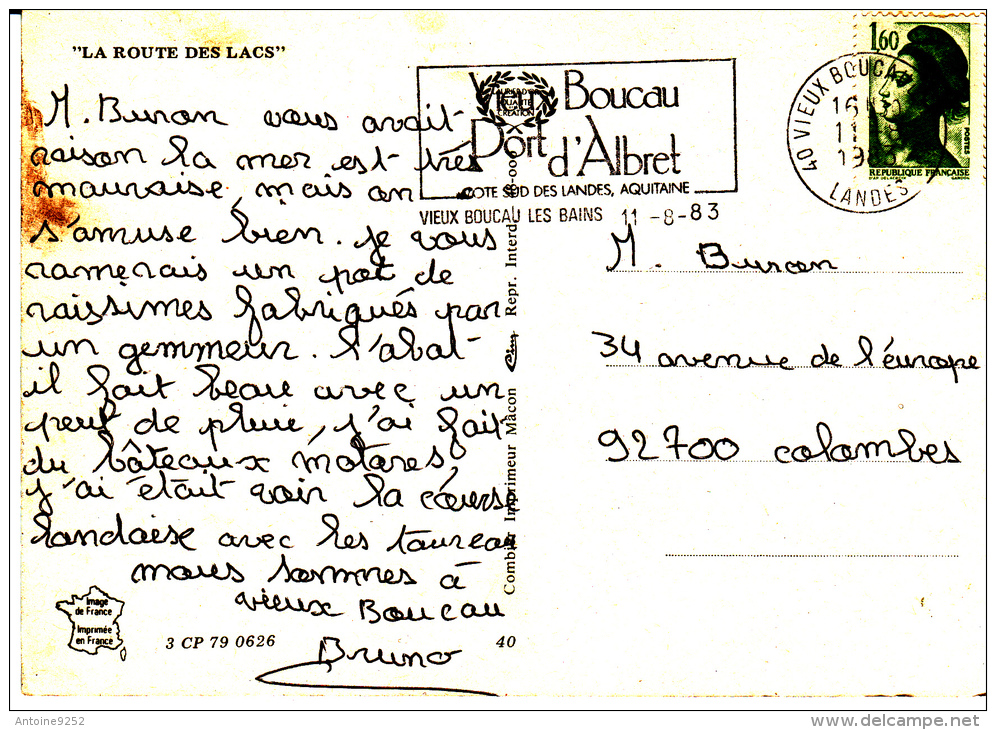 "LA ROUTE DES LACS"
M. Buron vous avait
raison la mer est très
mauvaise, mais on
s'amuse bien. je vous
ramerais un pot de
raissimes fabriqués par
un gemmeur. l'abat-
il fait beau avec un
peut de pluie, j'ai fait
du bâteaux motores,
j'ai était voir la course
landaise avec les taureau
nous sommes à
vieux Boucau
Bruno
Image
de France
Imprimée
en France
3 CP 79 0626
40
Combier Imprimeur Mâcon Repr. Interd.
Vieux Boucau
Port d'Albret
LAURIER D'OR
QUALITÉ
CREATION
COTE SUD DES LANDES, AQUITAINE
VIEUX BOUCAU LES BAINS 11-8-83
40 VIEUX BOUCAU
16 H
11
LANDES
1,60
POSTES
REPUBLIQUE FRANÇAISE
D'AP. DELACROIX GANDON
M. Buron
34 avenue de l'éurope
92700 colombes
Antoine9252
delcampe.net